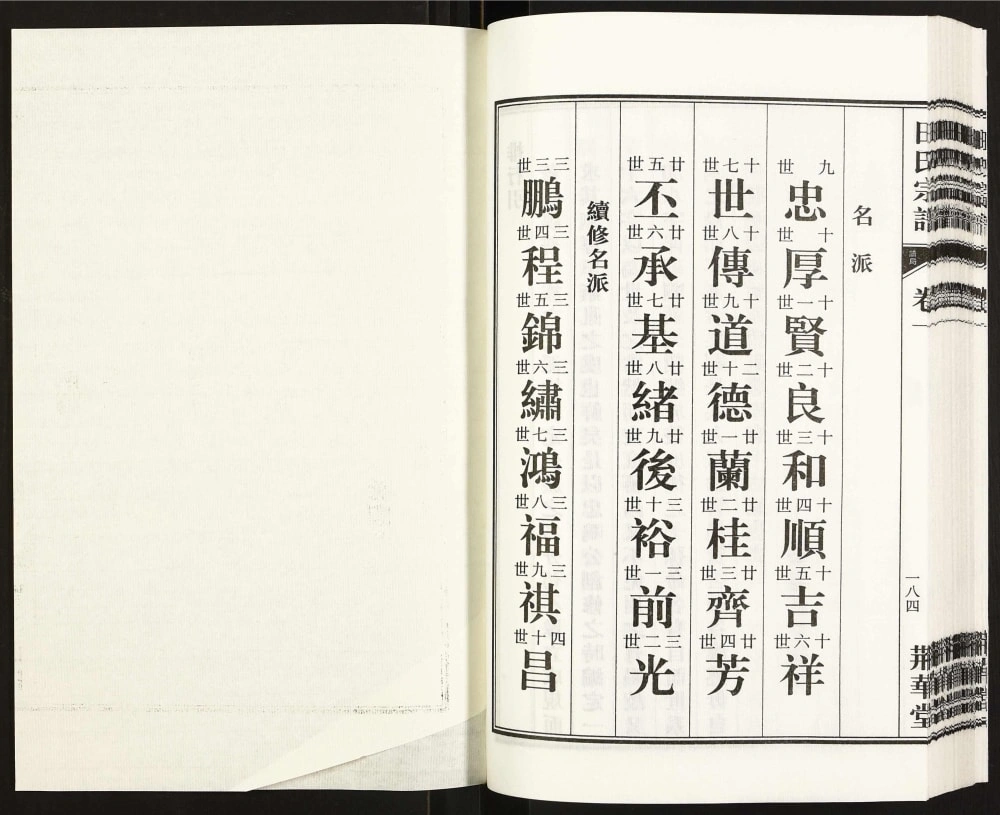 田氏宗譜
譜局
卷一
一八四
荊華堂
名派
九世忠十世厚十一世賢十二世良十三世和十四世順十五世吉十六世祥
十七世世十八世傳十九世道二十世德廿一世蘭廿二世桂廿三世齊廿四世芳
廿五世丕廿六世承廿七世基廿八世緒廿九世後三十世裕三一世前三二世光
續修名派
三三世鵬三四世程三五世錦三六世繡三七世鴻三八世福三九世祺四十世昌